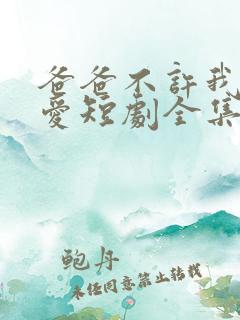 爸爸不許我
愛短劇全集
鲍丹
未经同意禁止转载